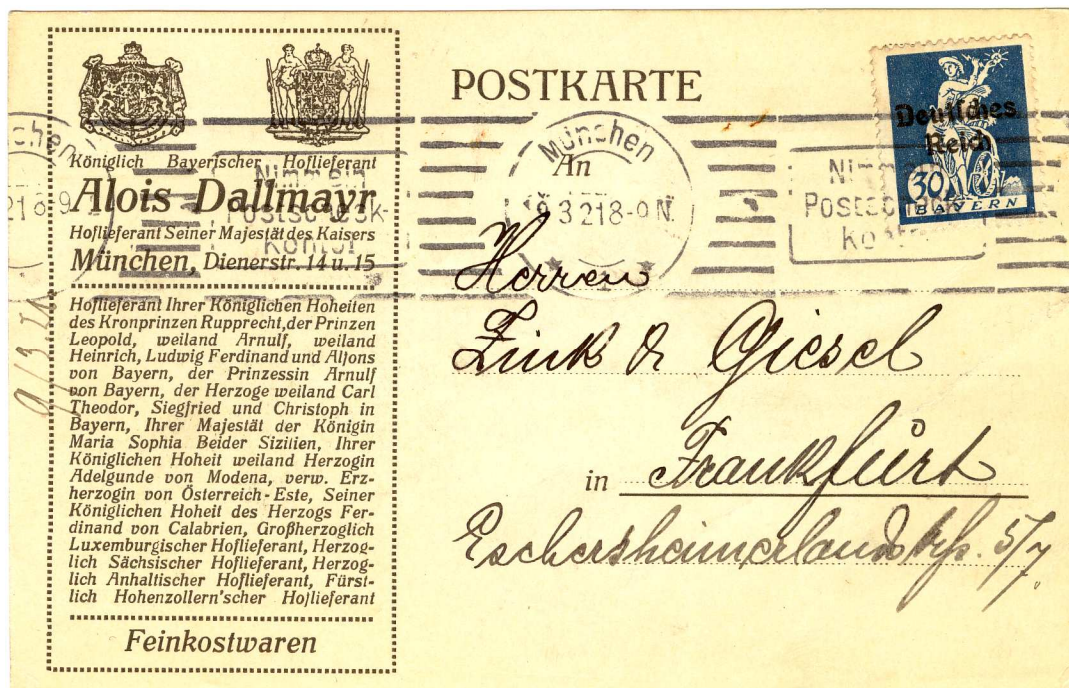 Königlich Bayerischer Hoflieferant
Alois Dallmayr
Hoflieferant Seiner Majestät des Kaisers
München, Dienerstr. 14 u. 15
Hoflieferant Ihrer Königlichen Hoheiten
des Kronprinzen Rupprecht, der Prinzen
Leopold, weiland Arnulf, weiland
Heinrich, Ludwig Ferdinand und Alfons
von Bayern, der Prinzessin Arnulf
von Bayern, der Herzoge weiland Carl
Theodor, Siegfried und Christoph in
Bayern, Ihrer Majestät der Königin
Maria Sophia Beider Sizilien, Ihrer
Königlichen Hoheit weiland Herzogin
Adelgunde von Modena, verw. Erz-
herzogin von Österreich-Este, Seiner
Königlichen Hoheit des Herzogs Fer-
dinand von Calabrien, Großherzoglich
Luxemburgischer Hoflieferant, Herzog-
lich Sächsischer Hoflieferant, Herzog-
lich Anhaltischer Hoflieferant, Fürst-
lich Hohenzollern'scher Hoflieferant
Feinkostwaren
POSTKARTE
Deutsches
Reich
30
BAYERN
München
3 21 8-9 N.
Nimm ein
Postscheck-
Konto
An
Herren
Zink & Giesel
in Frankfurt
Eschersheimerlandstr. 5/7